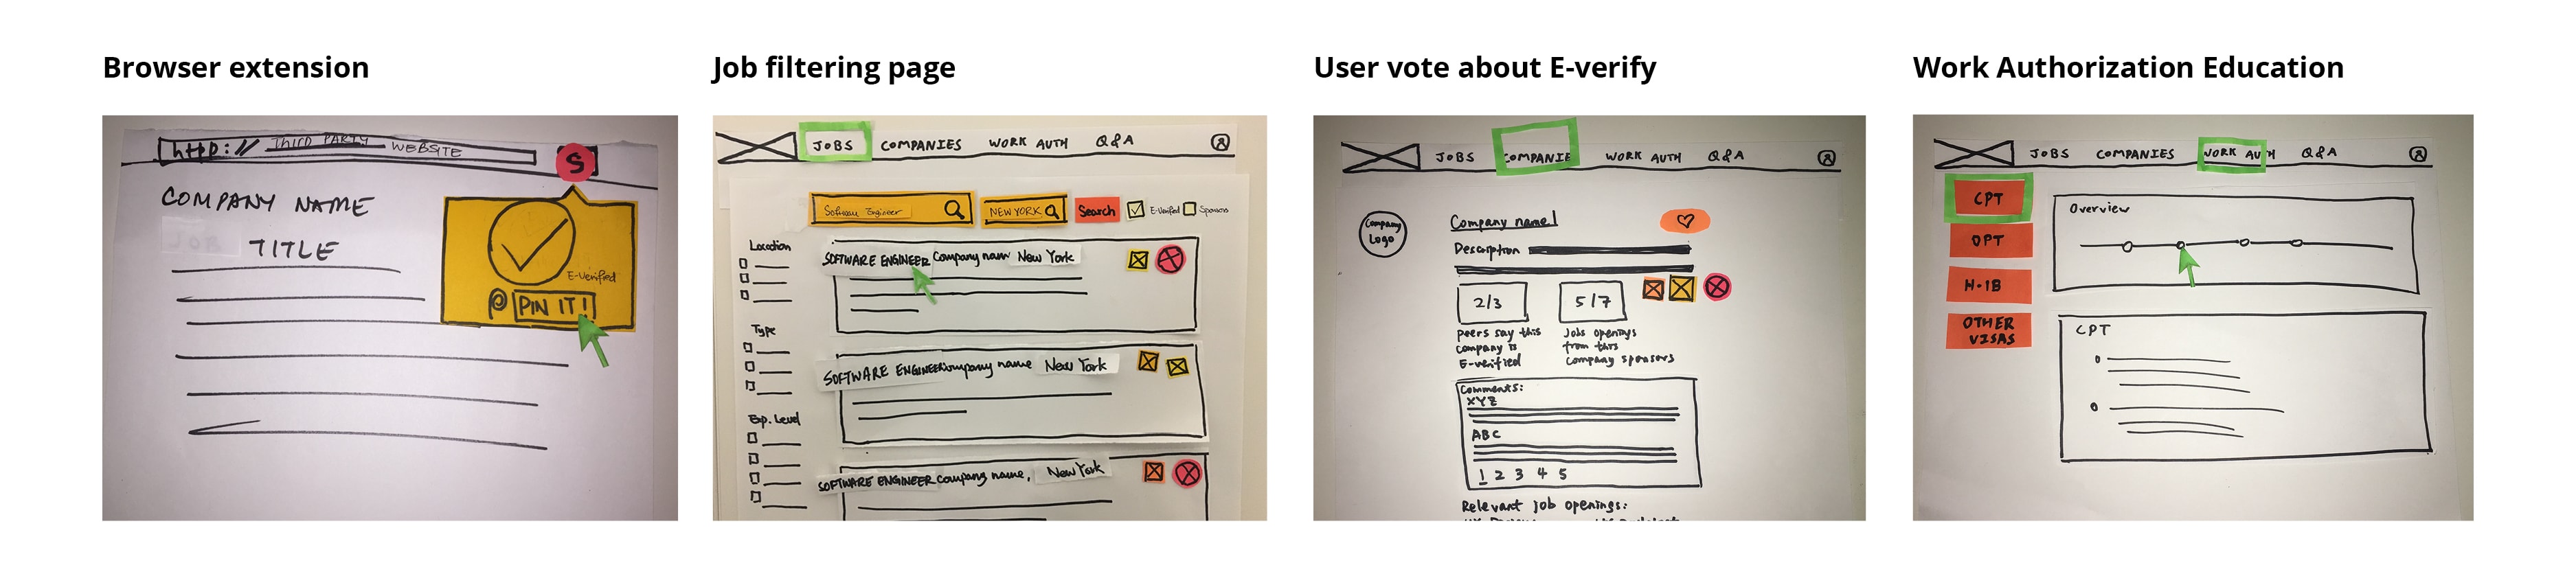 Browser extension
http:// THIRD PARTY WEBSITE
S
COMPANY NAME
JOB TITLE
E-Verified
PIN IT!
Job filtering page
JOBS COMPANIES WORK AUTH Q&A
Software Engineer NEW YORK Search E-Verified Sponsors
Location
SOFTWARE ENGINEER Company name New York
Type
SOFTWARE ENGINEER Company name New York
Exp. Level
SOFTWARE ENGINEER Company name, New York
User vote about E-verify
JOBS COMPANIE WORK AUTH Q&A
Company Logo
Company name
Description
2/3 5/7
peers say this company is E-verified
Jobs openings from this company sponsors
Comments:
XYZ
ABC
1 2 3 4 5
Relevant job openings:
Work Authorization Education
JOBS COMPANIES WORK AUTH Q&A
CPT
OPT
H-1B
OTHER VISAS
Overview
CPT